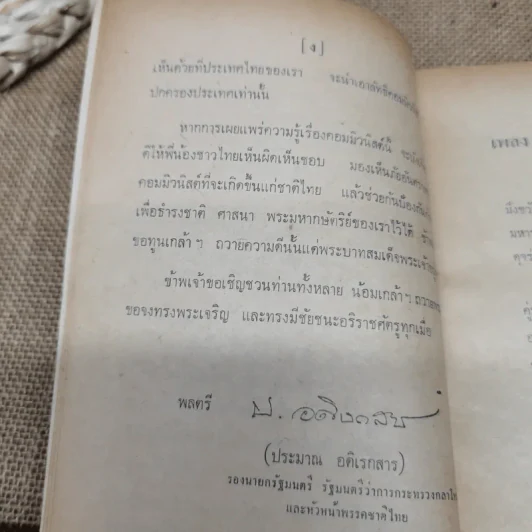 [ง]
เห็นด้วยที่ประเทศไทยของเรา จะนำเอาลัทธิคอมมิวนิสต์
ปกครองประเทศเท่านั้น
หากการเผยแพร่ความรู้เรื่องคอมมิวนิสต์นี้
ดีให้พี่น้องชาวไทยเห็นผิดเห็นชอบ มองเห็นภัยอัน
คอมมิวนิสต์ที่จะเกิดขึ้นแก่ชาติไทย แล้วช่วยกันป้องกัน
เพื่อธำรงชาติ ศาสนา พระมหากษัตริย์ของเราไว้ได้
ขอทูนเกล้าฯ ถวายความดีนั้นแด่พระบาทสมเด็จพระเจ้า
ข้าพเจ้าขอเชิญชวนท่านทั้งหลาย น้อมเกล้าฯ ถวาย
ขอจงทรงพระเจริญ และทรงมีชัยชนะอริราชศัตรูทุกเมื่อ
พลตรี
(ประมาณ อดิเรกสาร)
รองนายกรัฐมนตรี รัฐมนตรีว่าการกระทรวงกลาโหม
และหัวหน้าพรรคชาติไทย
เพลง